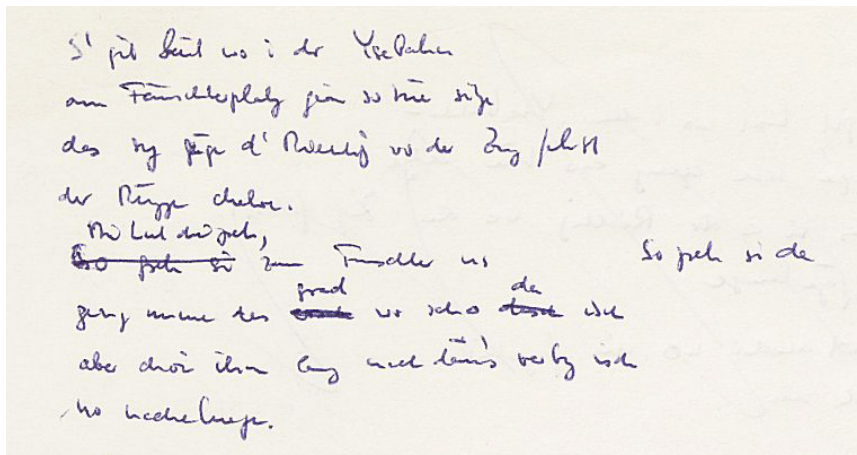 S' git Lüt wo i der Ysebahn
am Fänschterplatz gärn so tüe sitze
das sy gäge d' Richtig wo der Zug fahrt
der Rügge chehre.
Die Lüt die gseh,
So gseh si zum Fänschter us So gseh si da
grad da
geng numme das wo scho isch
aber chöi ihm lang nach däm's verby isch
no nacheluege.